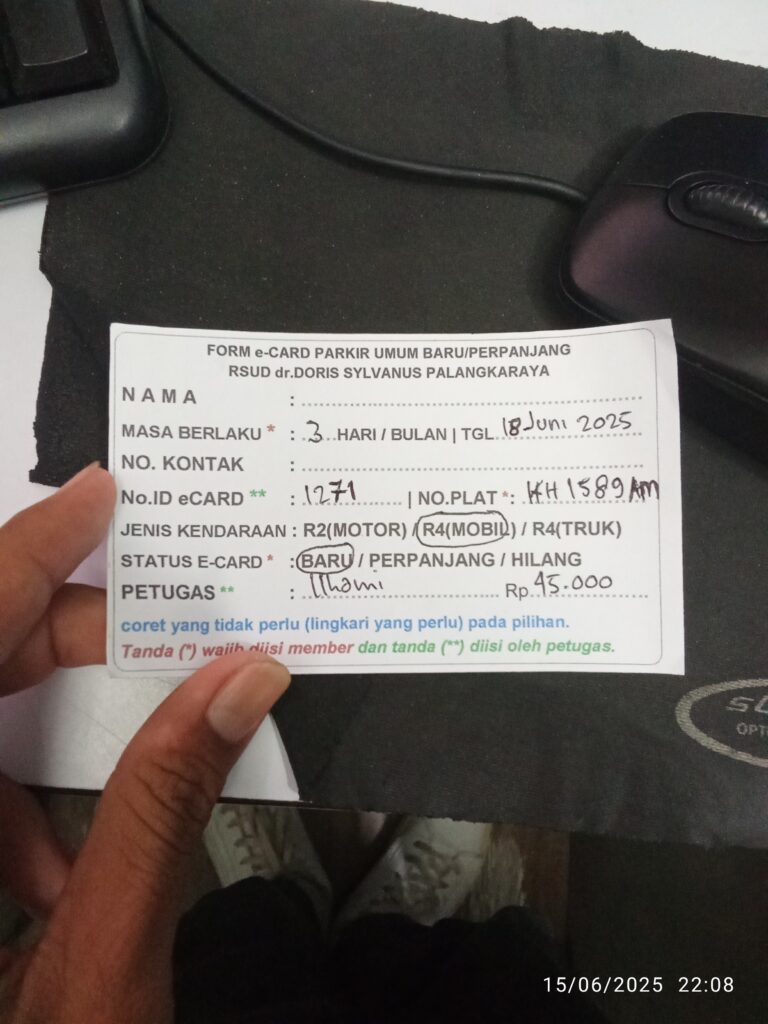 FORM e-CARD PARKIR UMUM BARU/PERPANJANG
RSUD dr.DORIS SYLVANUS PALANGKARAYA
N A M A :
MASA BERLAKU * : 3 HARI / BULAN | TGL 18 Juni 2025
NO. KONTAK :
No.ID eCARD ** : 1271 | NO.PLAT *: KH 1589 AM
JENIS KENDARAAN : R2(MOTOR) / R4(MOBIL) / R4(TRUK)
STATUS E-CARD * : BARU / PERPANJANG / HILANG
PETUGAS ** : Ilhami Rp. 45.000
coret yang tidak perlu (lingkari yang perlu) pada pilihan.
Tanda (*) wajib diisi member dan tanda (**) diisi oleh petugas.
15/06/2025 22:08